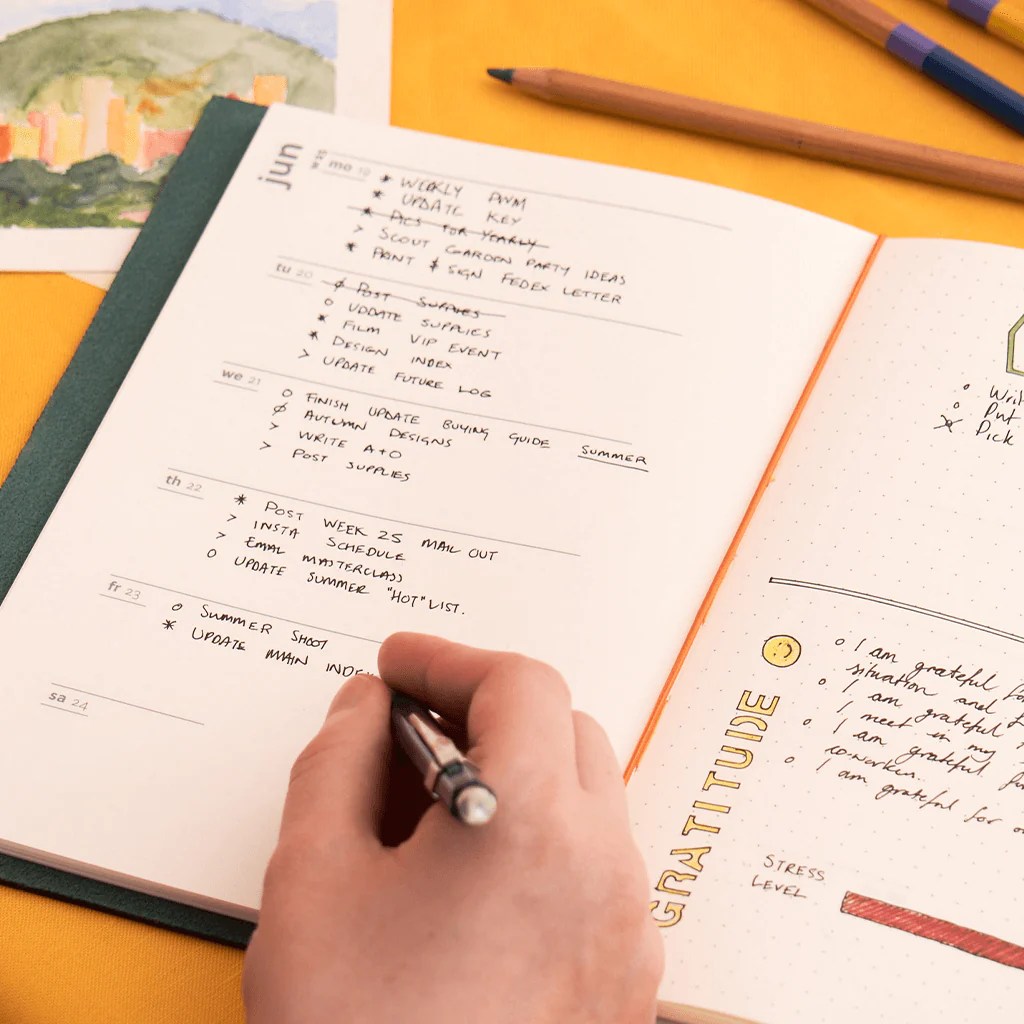 jun
mo 19
* WEEKLY AWM
* UPDATE KEY
* PICS FOR YEARLY
> SCOUT GARDEN PARTY IDEAS
* PRINT & SIGN FEDEX LETTER
tu 20
ø POST SUPPLIES
o UPDATE SUPPLIES
* FILM VIP EVENT
* DESIGN INDEX
> UPDATE FUTURE LOG
we 21
o FINISH UPDATE BUYING GUIDE SUMMER
ø AUTUMN DESIGNS
> WRITE A+O
> POST SUPPLIES
th 22
* POST WEEK 25 MAIL OUT
> INSTA SCHEDULE
> EMAIL MASTERCLASS
o UPDATE SUMMER "HOT" LIST.
fr 23
o SUMMER SHOOT
* UPDATE MAIN INDEX
sa 24
o Writ
o Put
Pick
GRATITUDE
o I am grateful fo
situation and
o I am grateful
I meet in my
o I am grateful
co-worker.
o I am grateful for o
STRESS
LEVEL